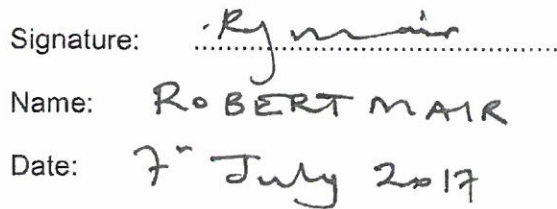 Signature: Rjmair
Name: ROBERT MAIR
Date: 7th July 2017